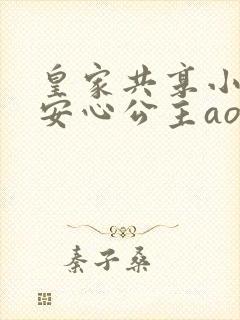 皇家共享小
安心公主ao
秦子桑